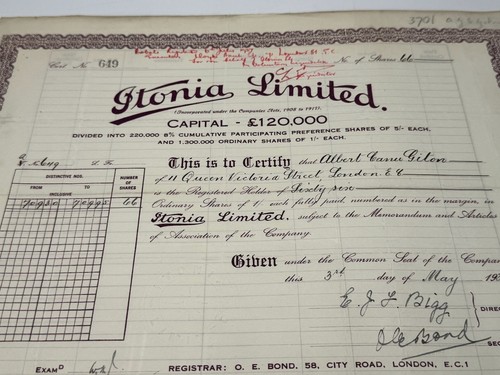 3701
Cert No 649 No. of Shares 66
Itonia Limited.
(Incorporated under the Companies Acts, 1908 to 1917).
CAPITAL - £120,000
DIVIDED INTO 220,000 8% CUMULATIVE PARTICIPATING PREFERENCE SHARES OF 5/- EACH,
AND 1,300,000 ORDINARY SHARES OF 1/- EACH.
This is to Certify that Albert
of 11 Queen Victoria Street London. E.C
is the Registered Holder of Sixty six
Ordinary Shares of 1/- each fully paid, numbered as in the margin, in
Itonia Limited. subject to the Memorandum and Articles
of Association of the Company.
DISTINCTIVE NOS.
NUMBER OF SHARES
FROM TO
INCLUSIVE
70930 70995 66
Given under the Common Seal of the Company
this 3rd day of May 193
E. J. L. Bigg
DIREC
O E Bond
SEC
EXAMD
REGISTRAR: O. E. BOND, 58, CITY ROAD, LONDON, E.C.1